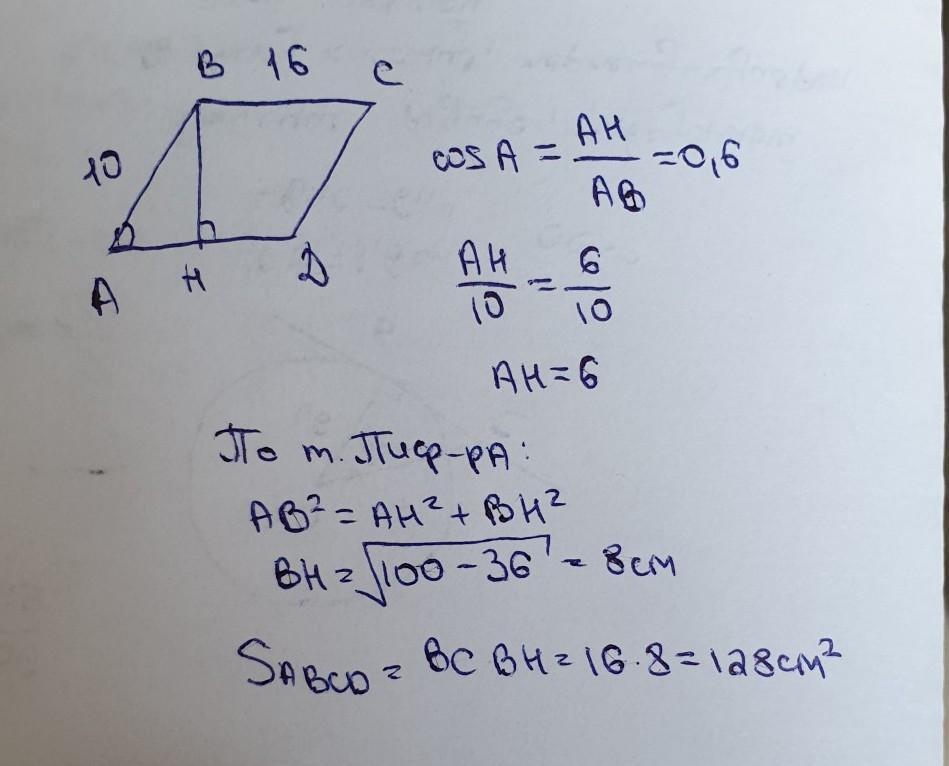 B 16 C
10
A H D
cos A = AH/AB = 0,6
AH/10 = 6/10
AH = 6
По т. Пиф-рА:
AB² = AH² + BH²
BH = √100 - 36 = 8см
SABCD = BC BH = 16 · 8 = 128см²